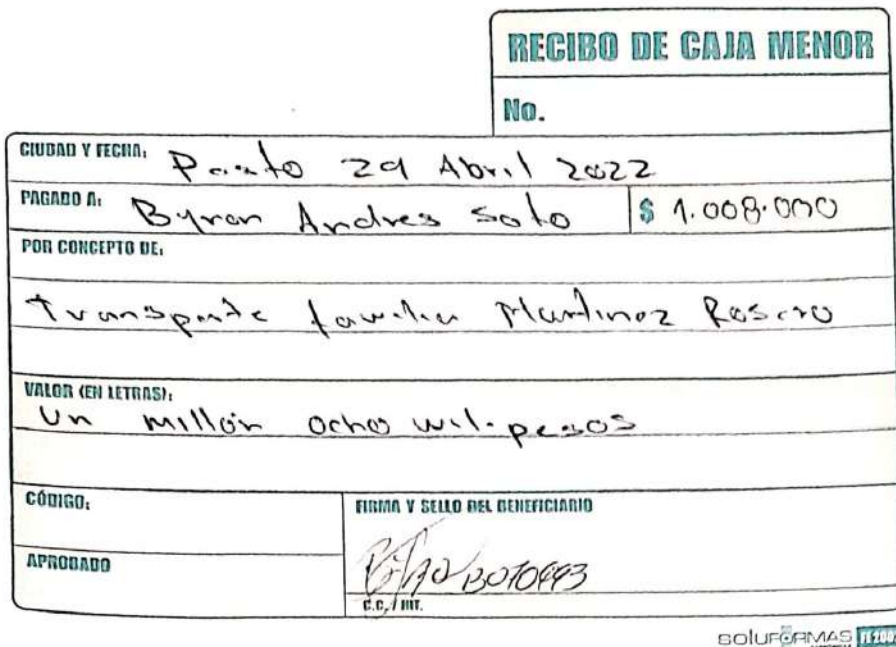 RECIBO DE CAJA MENOR
No.
CIUDAD Y FECHA: Pasto 29 Abril 2022
PAGADO A: Byron Andres Soto $ 1.008.000
POR CONCEPTO DE:
Transporte familia Martinez Rosero
VALOR (EN LETRAS):
Un millón ocho mil pesos
CÓDIGO:
FIRMA Y SELLO DEL BENEFICIARIO
APROBADO
C.C. / NIT.
SOLUFORMAS